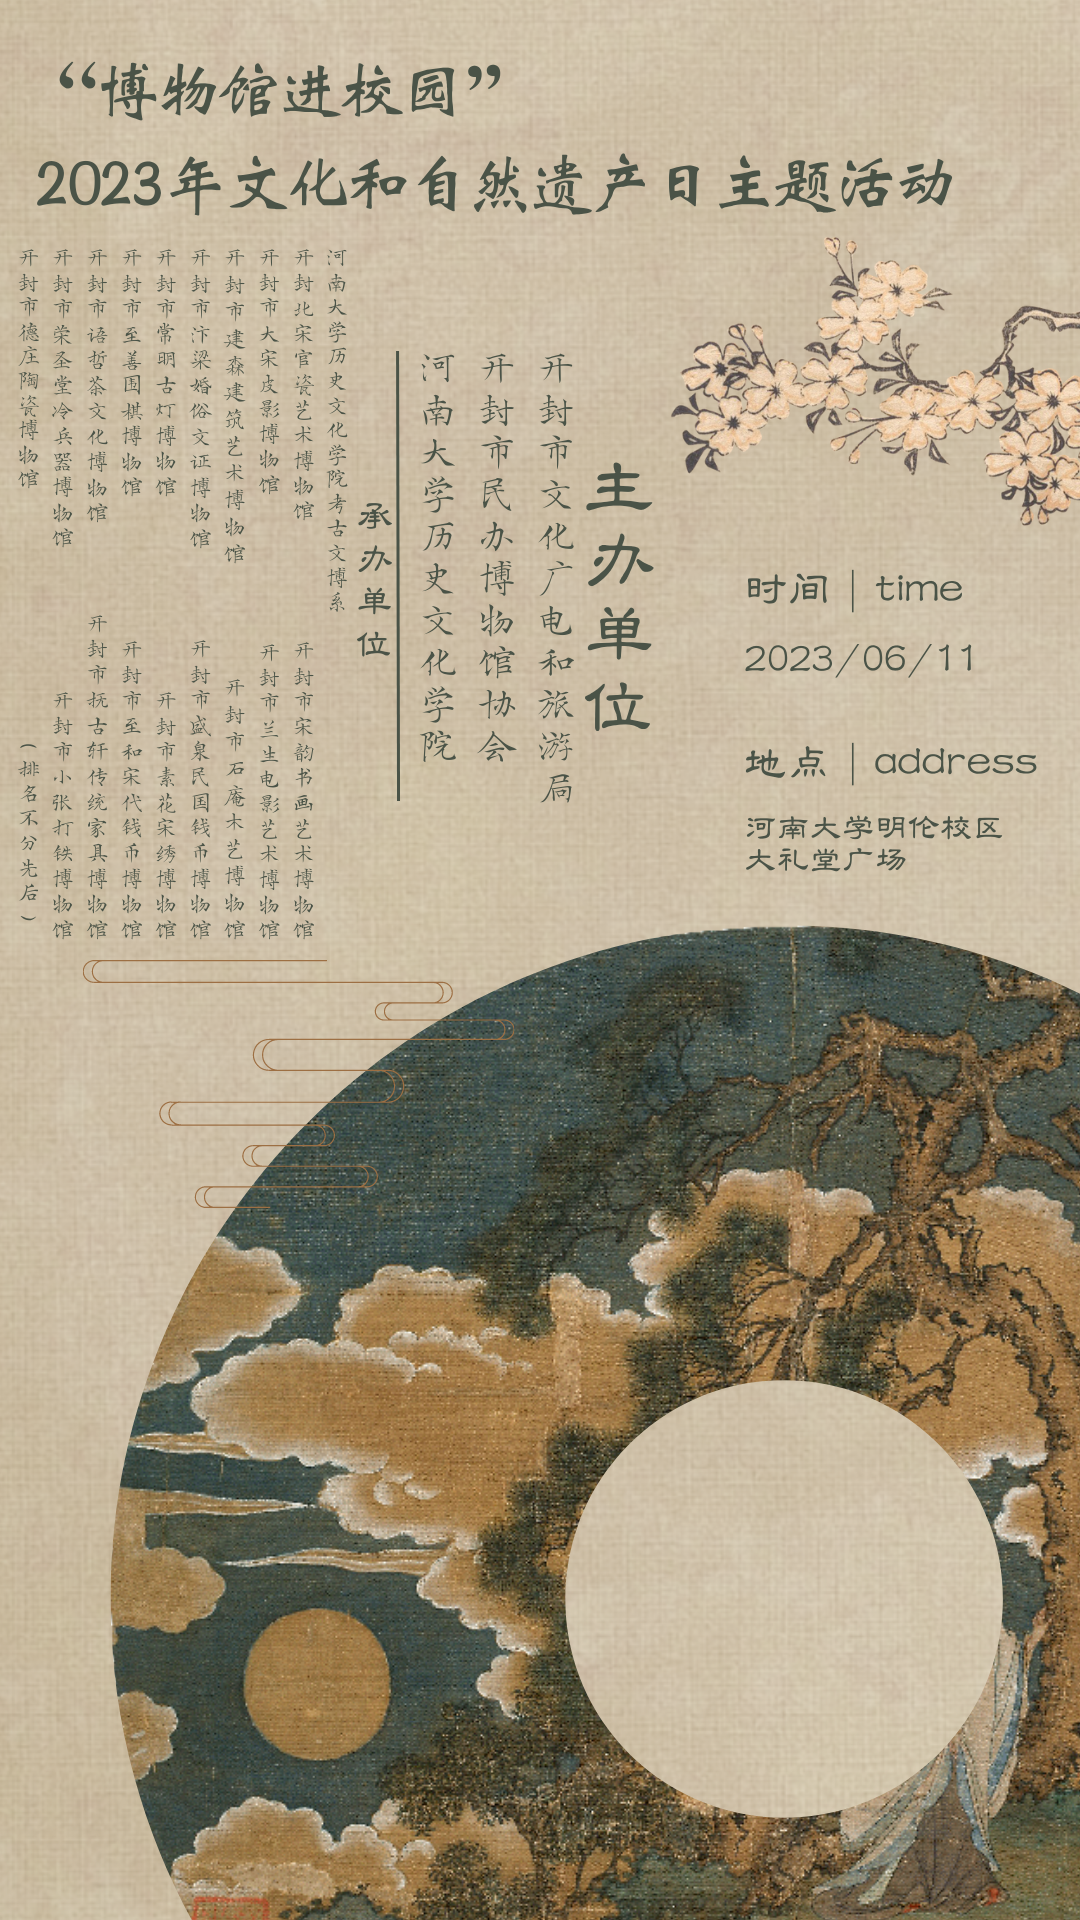 “博物馆进校园”
2023年文化和自然遗产日主题活动
主办单位
开封市文化广电和旅游局
开封市民办博物馆协会
河南大学历史文化学院
承办单位
河南大学历史文化学院考古文博系
开封北宋官瓷艺术博物馆
开封市宋韵书画艺术博物馆
开封市大宋皮影博物馆
开封市兰生电影艺术博物馆
开封市建森建筑艺术博物馆
开封市石庵木艺博物馆
开封市汴梁婚俗文证博物馆
开封市盛泉民国钱币博物馆
开封市常明古灯博物馆
开封市素花宋绣博物馆
开封市至善围棋博物馆
开封市至和宋代钱币博物馆
开封市语哲茶文化博物馆
开封市抚古轩传统家具博物馆
开封市荣圣堂冷兵器博物馆
开封市小张打铁博物馆
开封市德庄陶瓷博物馆
（排名不分先后）
时间｜time
2023/06/11
地点｜address
河南大学明伦校区
大礼堂广场